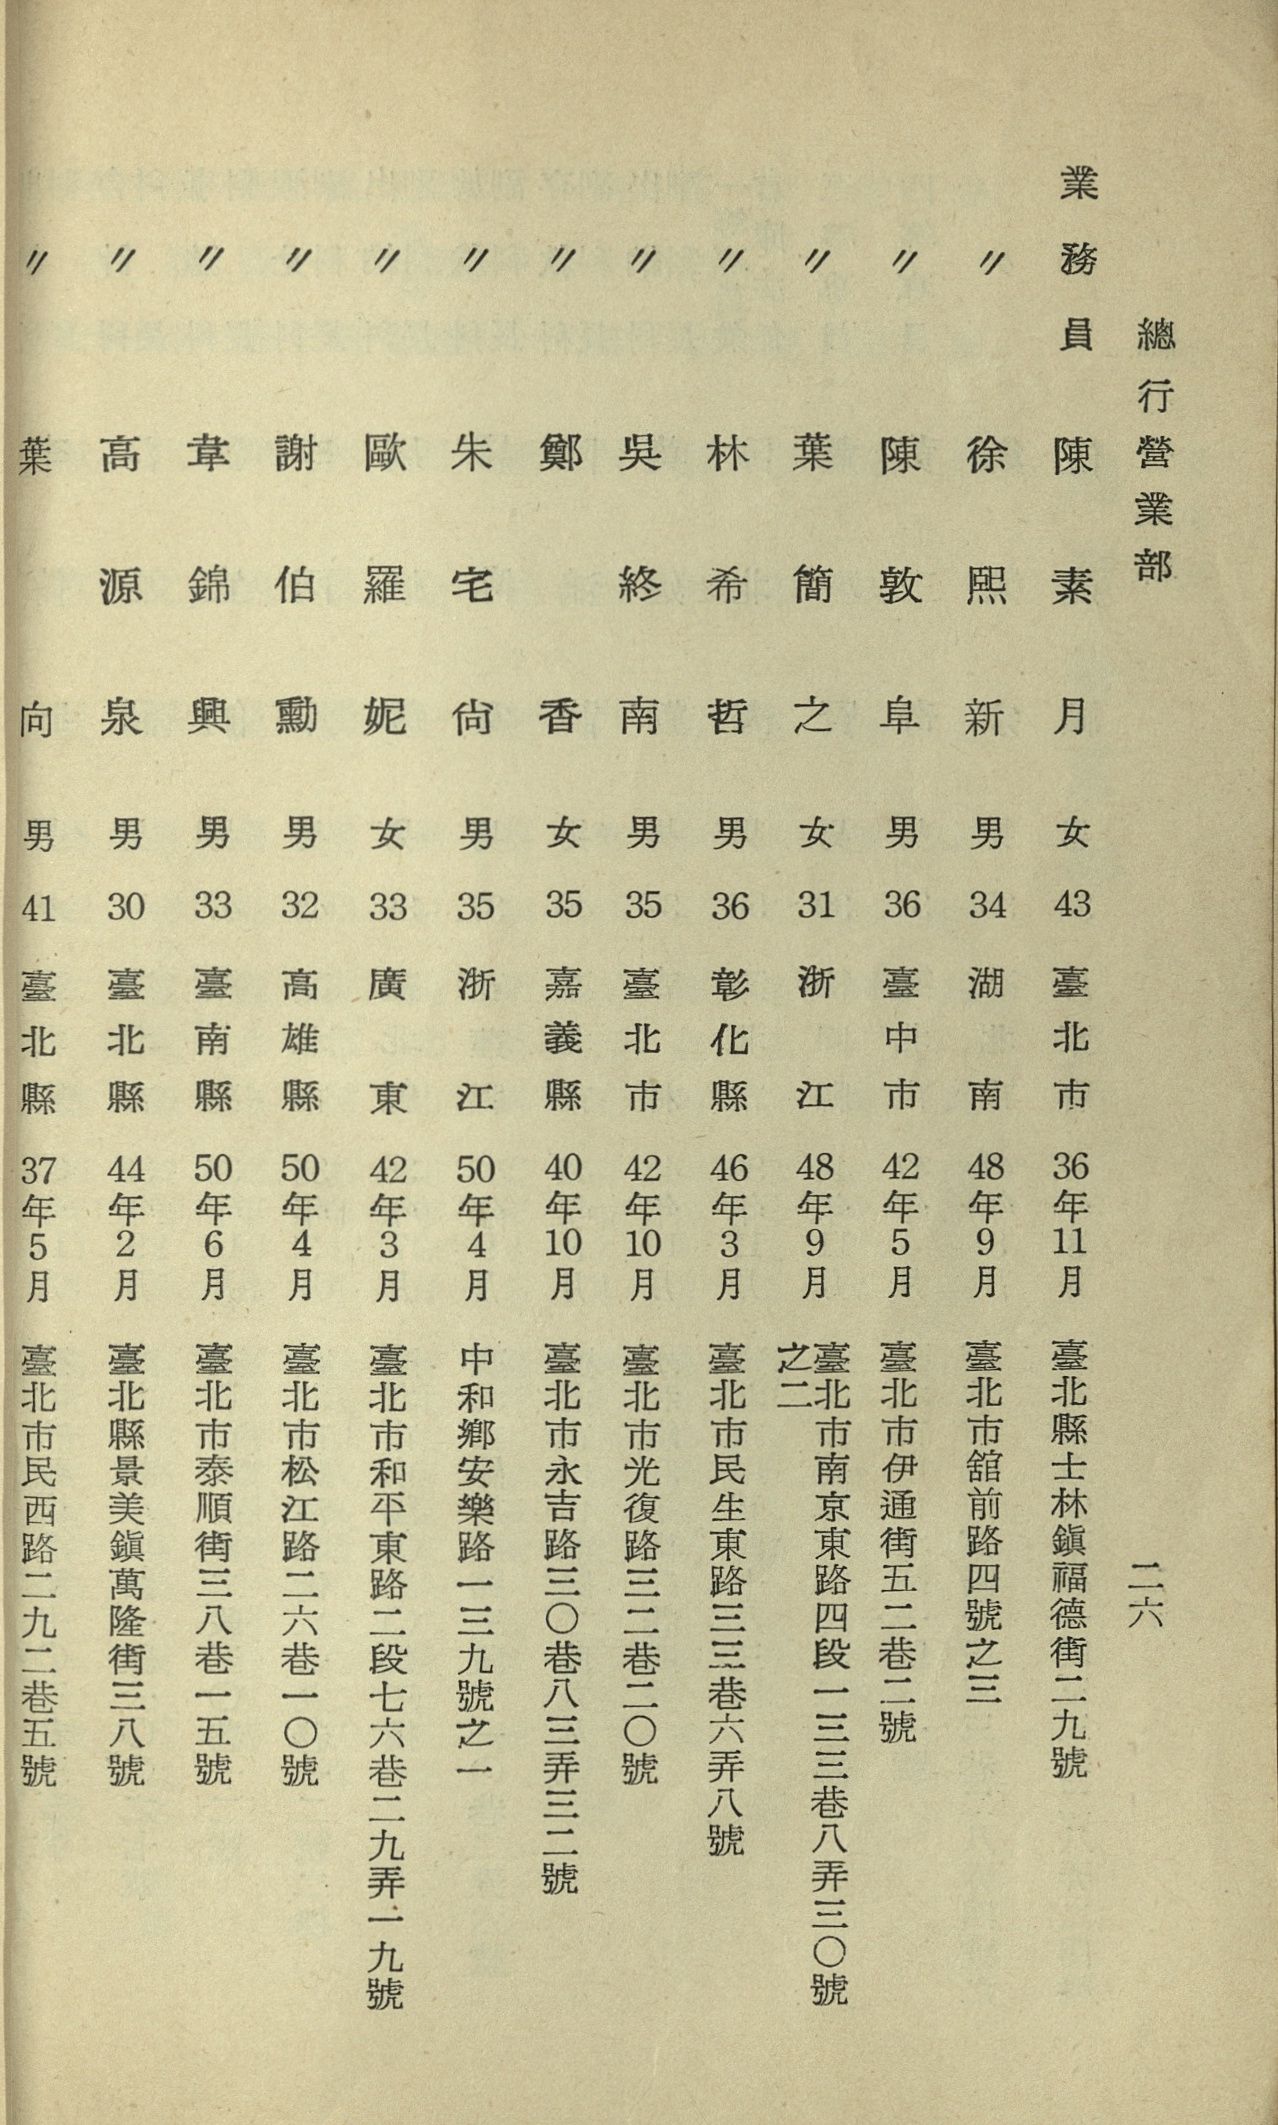 總行營業部 二六
業務員 陳素月 女 43 臺北市 36年11月 臺北縣士林鎭福德街二九號
〃 徐熙新 男 34 湖南 48年9月 臺北市舘前路四號之三
〃 陳敦阜 男 36 臺中市 42年5月 臺北市伊通街五二巷二號
〃 葉簡之 女 31 浙江 48年9月 臺北市南京東路四段一三三巷八弄三〇號
之二
〃 林希哲 男 36 彰化縣 46年3月 臺北市民生東路三三巷六弄八號
〃 吳終南 男 35 臺北市 42年10月 臺北市光復路三二巷二〇號
〃 鄭香 女 35 嘉義縣 40年10月 臺北市永吉路三〇巷八三弄三二號
〃 朱宅尙 男 35 浙江 50年4月 中和鄉安樂路一三九號之一
〃 歐羅妮 女 33 廣東 42年3月 臺北市和平東路二段七六巷二九弄一九號
〃 謝伯勳 男 32 高雄縣 50年4月 臺北市松江路二六巷一〇號
〃 韋錦興 男 33 臺南縣 50年6月 臺北市泰順街三八巷一五號
〃 高源泉 男 30 臺北縣 44年2月 臺北縣景美鎭萬隆街三八號
〃 葉向 男 41 臺北縣 37年5月 臺北市民西路二九二巷五號